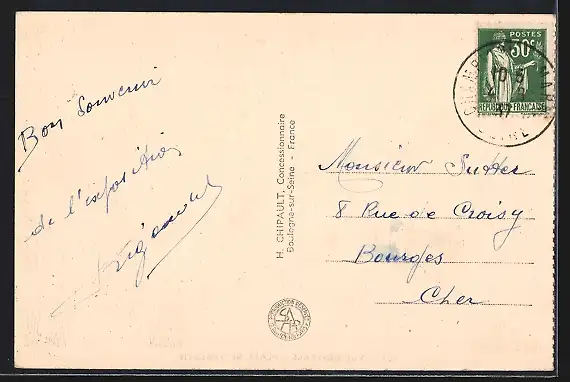 Bon Souvenir
de l'exposition
H. CHIPAULT, Concessionnaire
Boulogne-sur-Seine - France
POSTES
30c
RÉPUBLIQUE FRANÇAISE
37
SEINE
Monsieur Sutter
8 Rue de Croisy
Bourges
Cher